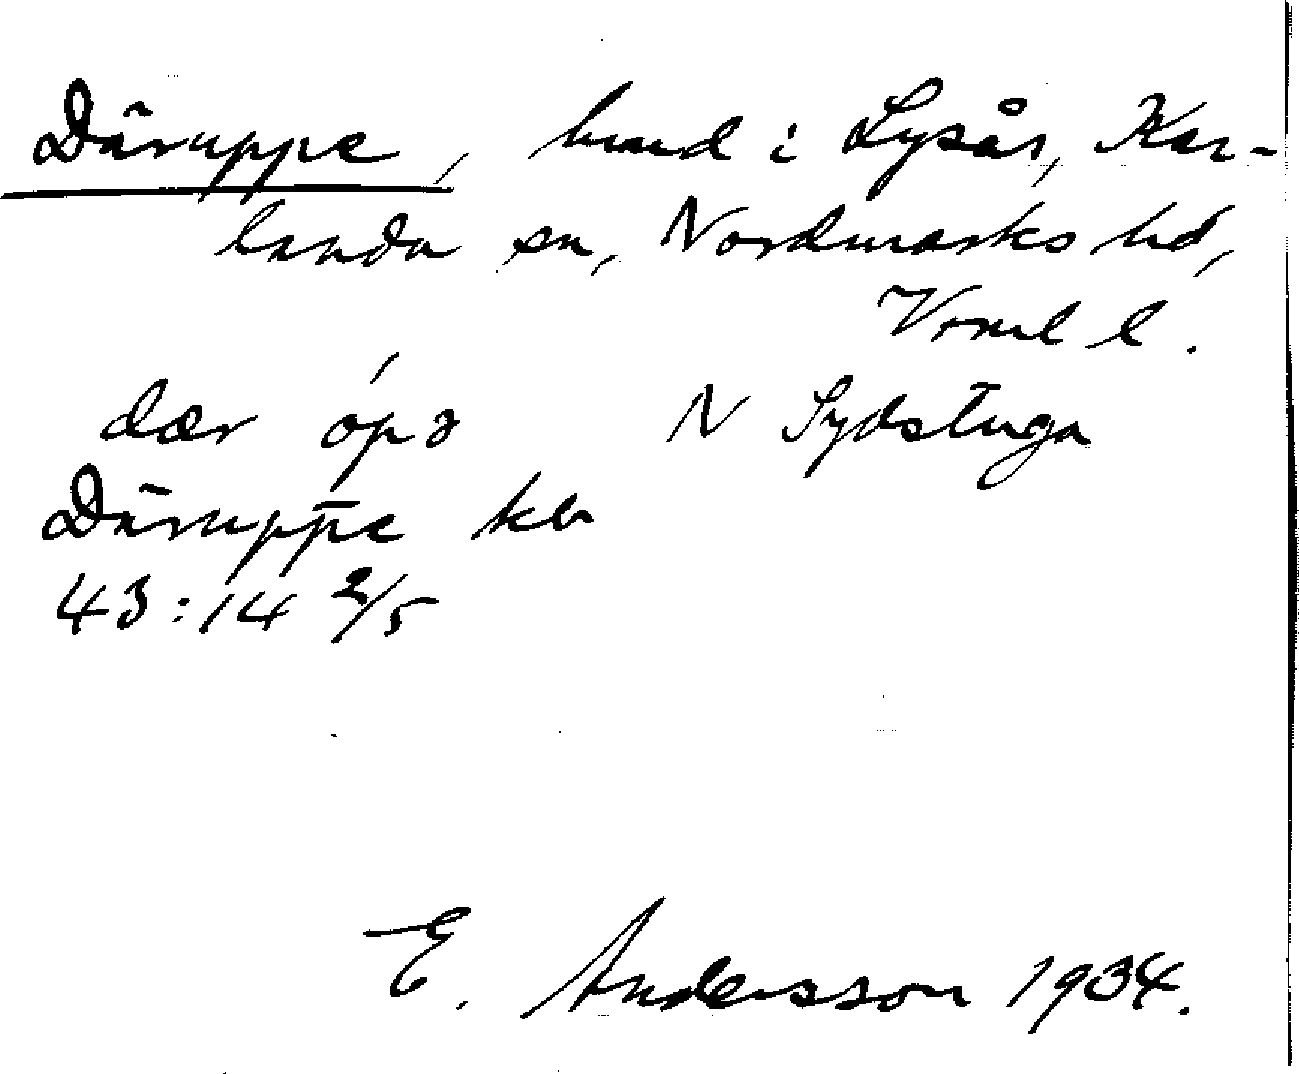 Däruppe, hmd i Lysås, Kar-
landa sn, Nordmarks hd,
Vrml l.
dær ópə N Sydstuga
Däruppe kbr
43:14 2/5
E. Andersson 1934.